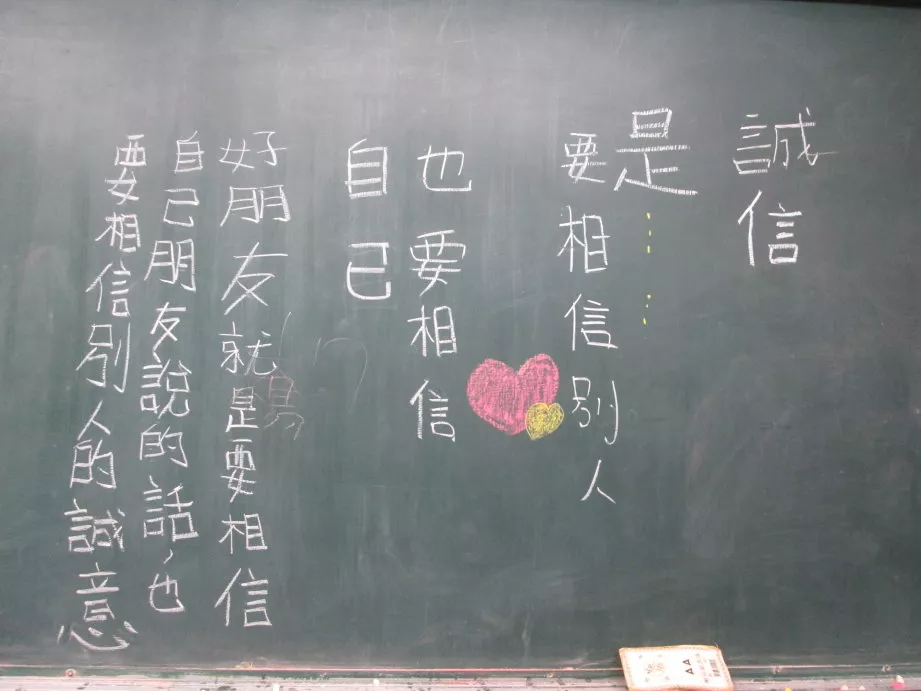 誠信
是
要相信別人
也要相信
自己
好朋友就是要相信
自己朋友說的話,也
要相信別人的誠意